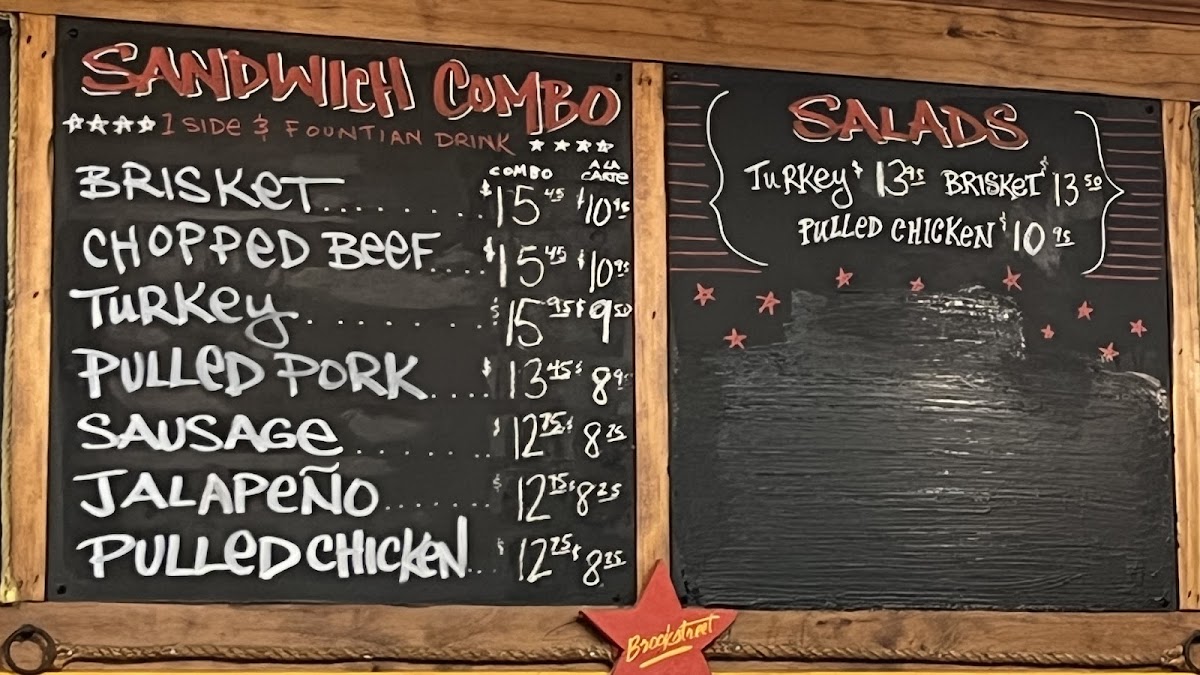 SANDWICH COMBO
1 SIDE & FOUNTIAN DRINK
COMBO A LA CARTE
BRISKET $15.45 $10.95
CHOPPED BEEF $15.45 $10.95
TURKEY $15.95 $9.50
PULLED PORK $13.45 $8.95
SAUSAGE $12.75 $8.25
JALAPEÑO $12.75 $8.25
PULLED CHICKEN $12.25 $8.25
SALADS
TURKEY $13.95 BRISKET $13.50
PULLED CHICKEN $10.95
Brookstreet